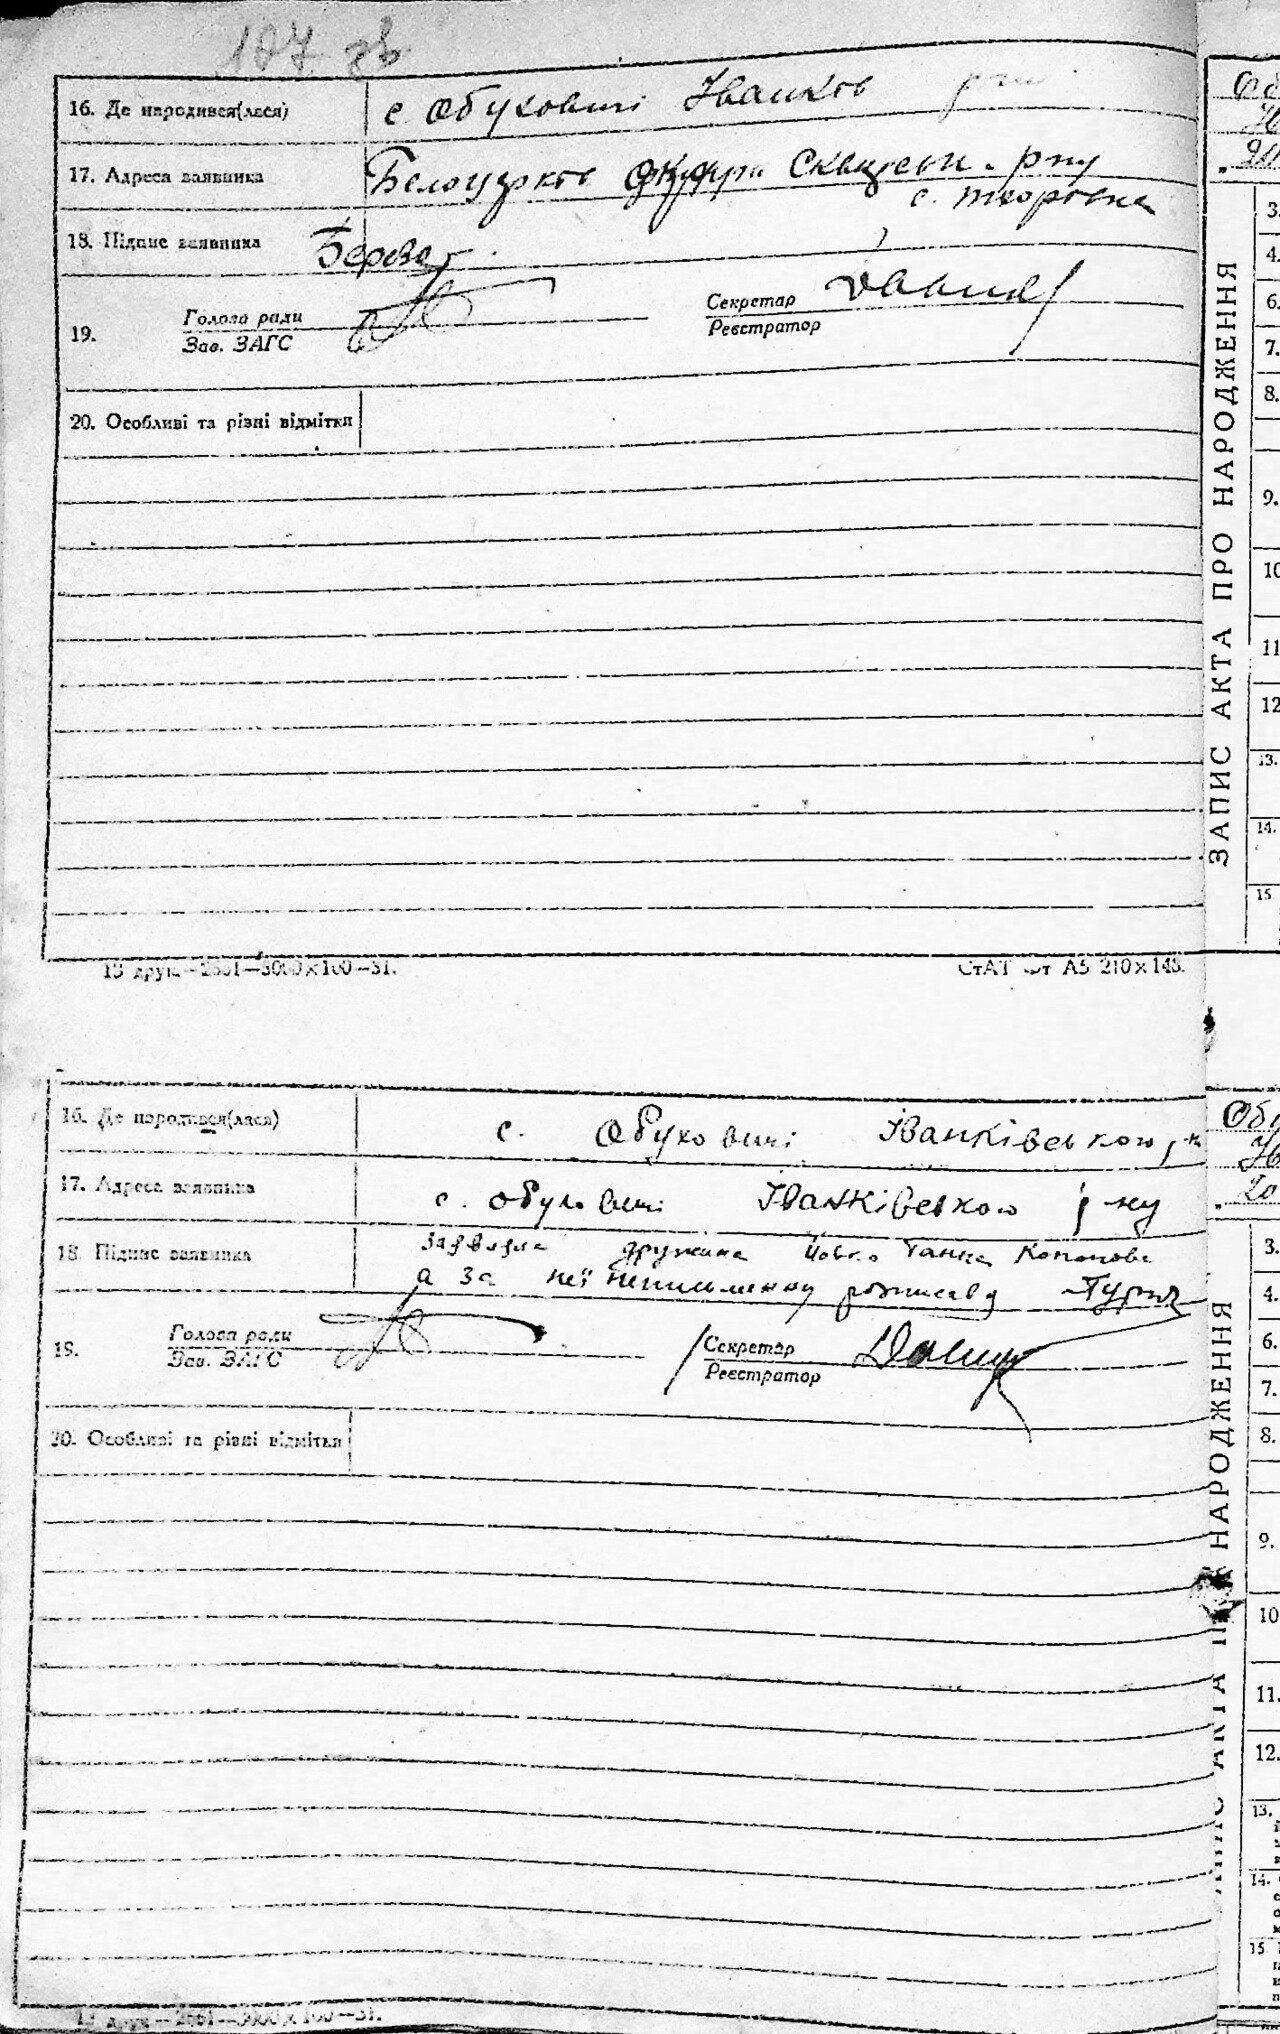 107 зв
16. Де народився(лася) с Обуховичі Іванков
17. Адреса заявника Белоцерков Сквирськ. р-ну
с.
18. Підпис заявника Береза
19. Голова ради Секретар
Зав. ЗАГС Реєстратор
20. Особливі та різні відмітки
13 друк.—2661—3000×100—31. СтАТ Фт А5 210×148.
16. Де народився(лася) с. Обуховичі Іванківського р-н
17. Адреса заявника с. Обуховичі Іванківського р-ну
заявила дружина
18. Підпис заявника а за неї неписьменну розписався
19. Голова ради Секретар
Зав. ЗАГС Реєстратор
20. Особливі та різні відмітки
13 друк.—2661—3000×100—31.
ЗАПИС АКТА ПРО НАРОДЖЕННЯ
3.
4.
6.
7.
8.
9.
10
11
12
13.
14.
15
ЗАПИС АКТА ПРО НАРОДЖЕННЯ
3.
4.
6.
7.
8.
9.
10
11.
12.
13.
14.
15